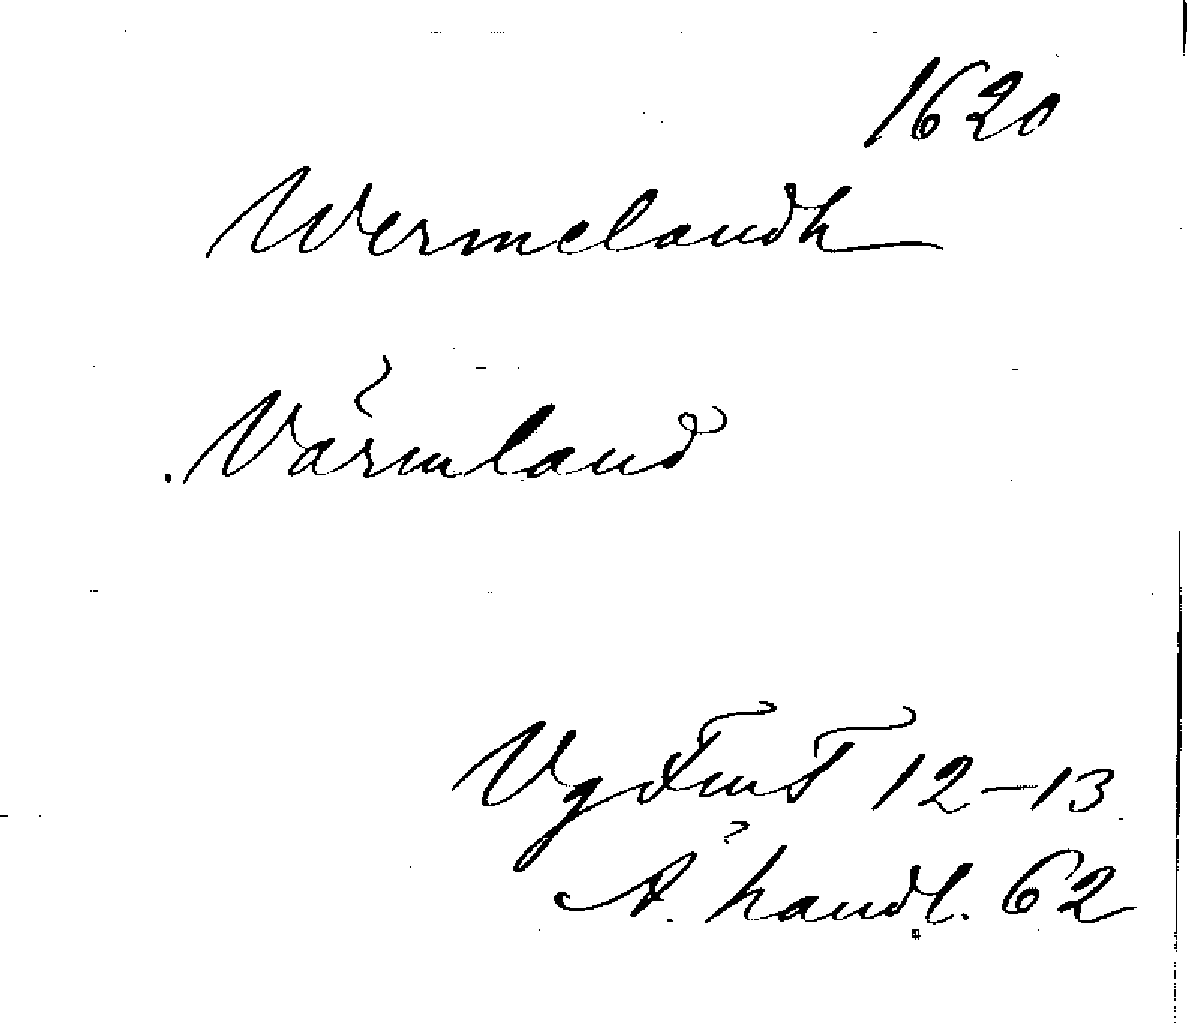 1620
Wermelandh
Värmland
VgFmT 12-13
A. handl. 62